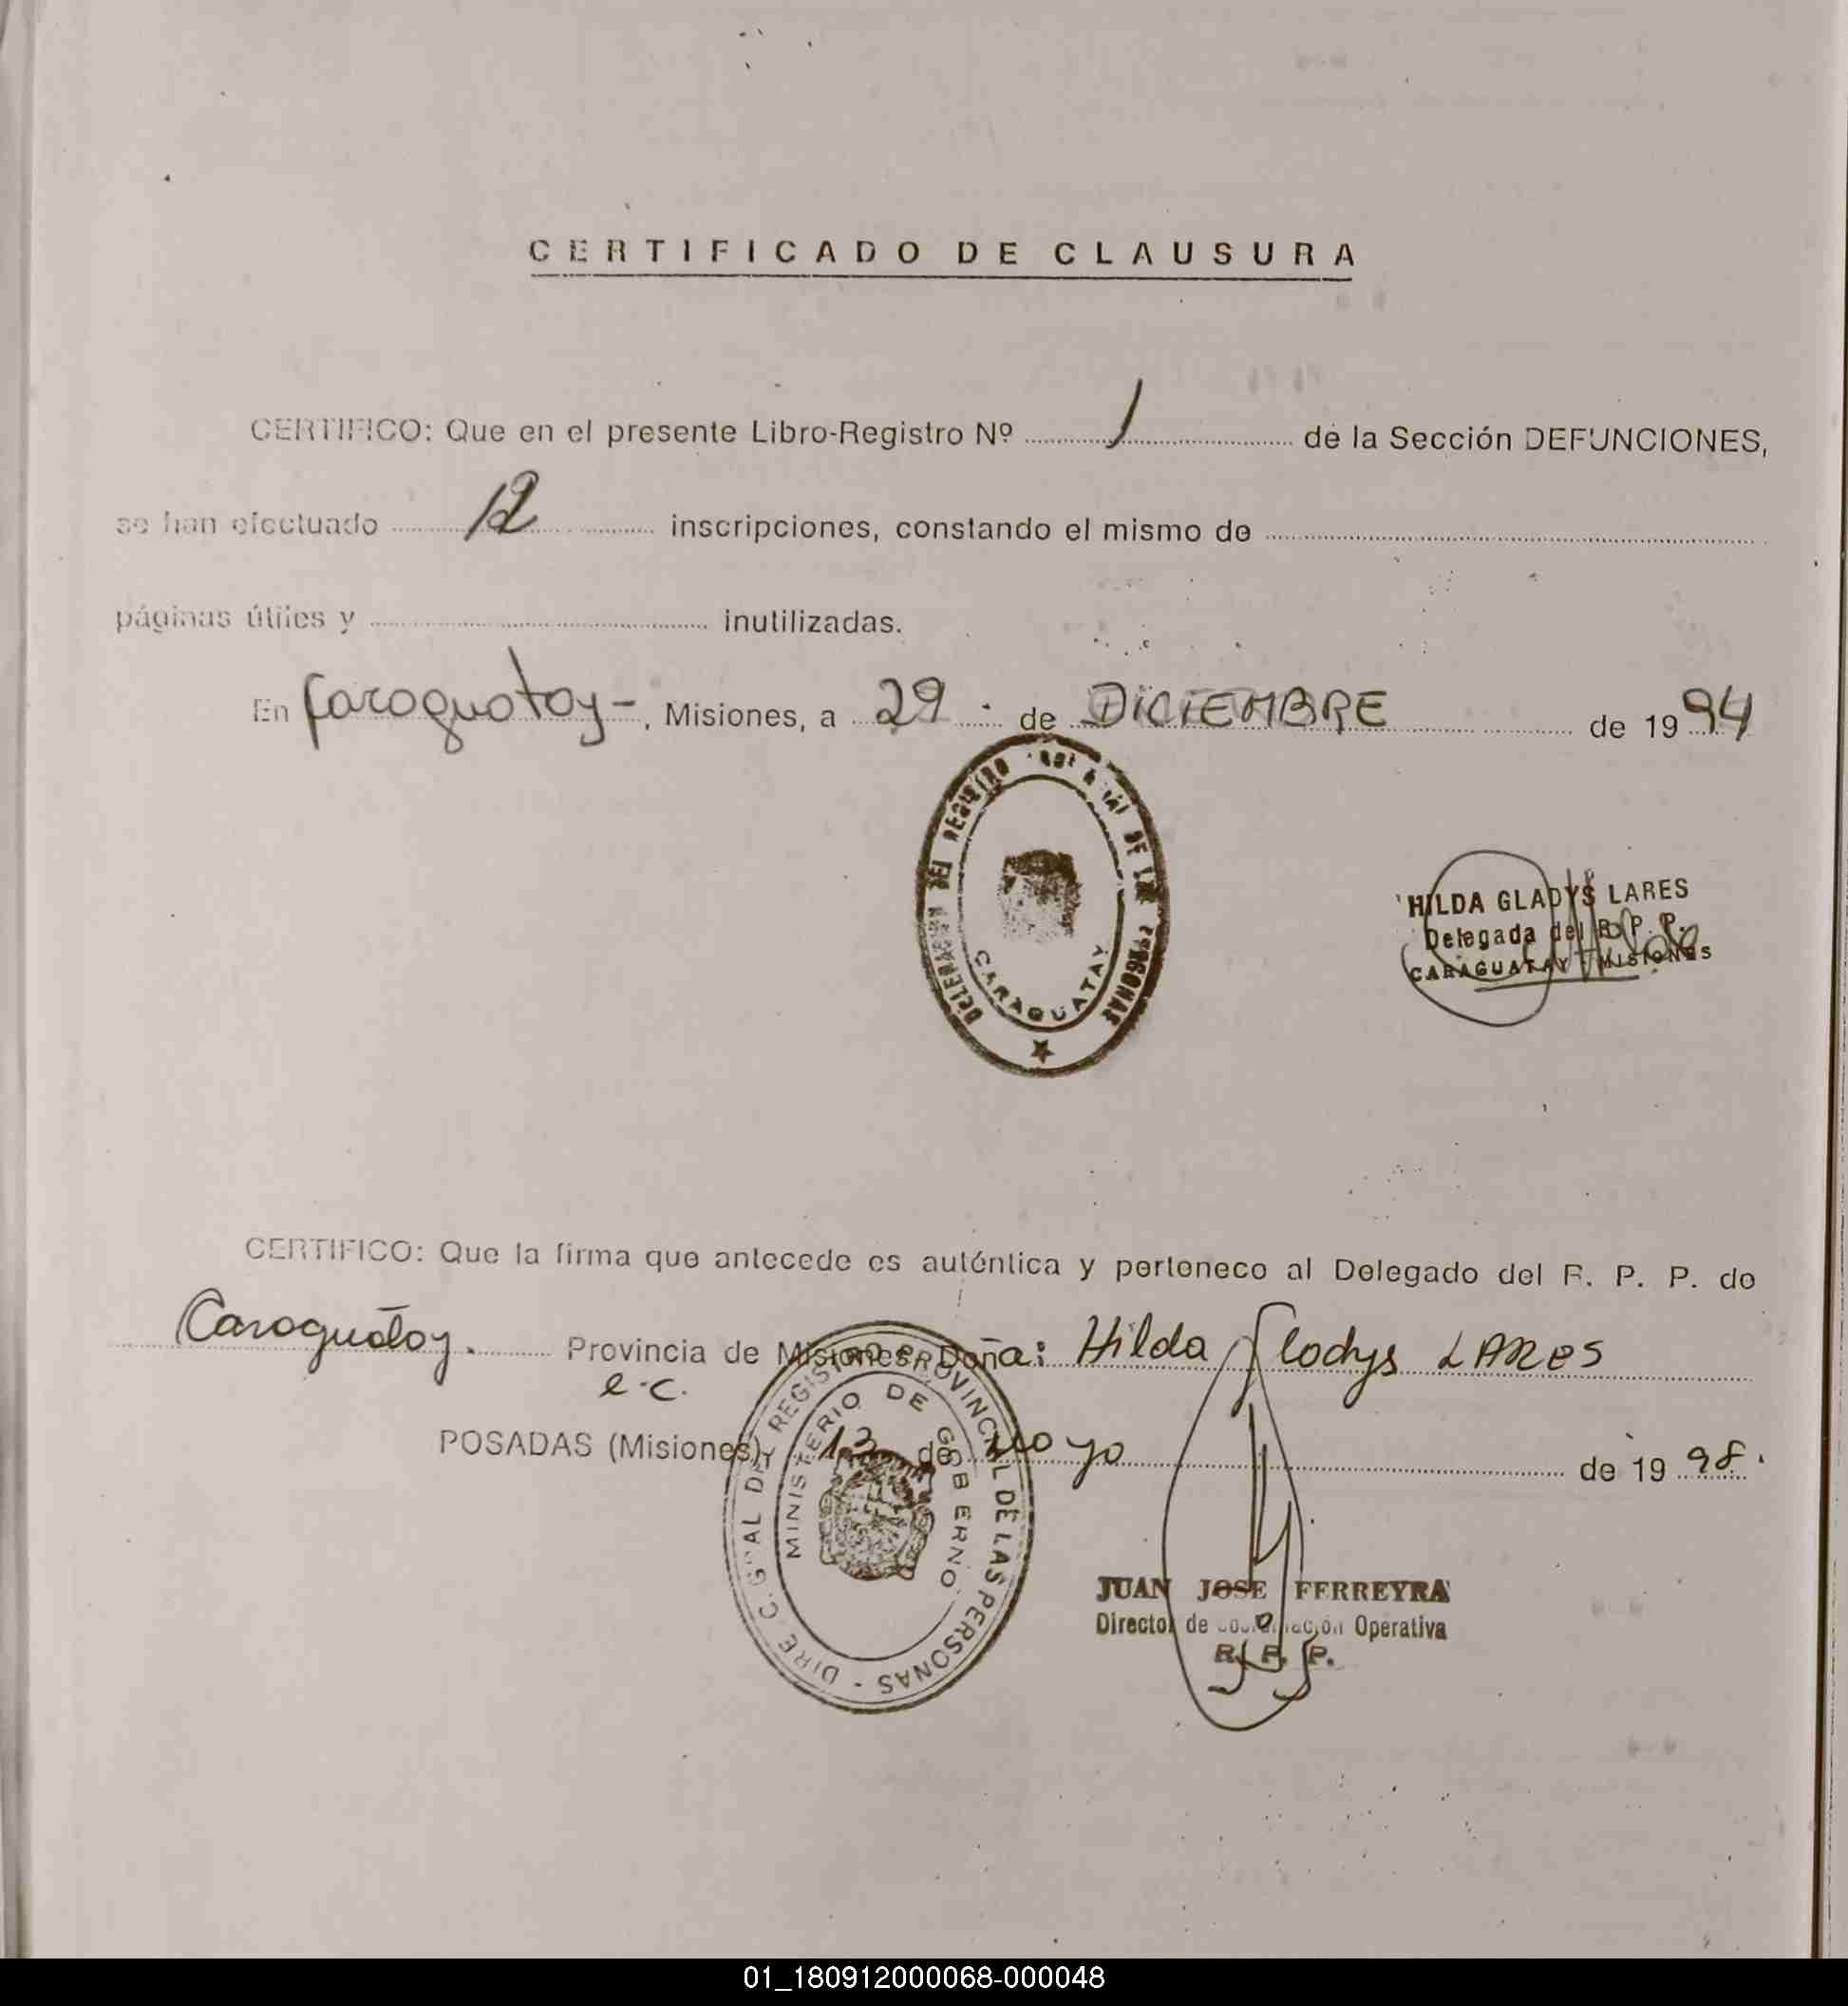 CERTIFICADO DE CLAUSURA
CERTIFICO: Que en el presente Libro-Registro Nº 1 de la Sección DEFUNCIONES,
se han efectuado 12 inscripciones, constando el mismo de
páginas útiles y inutilizadas.
En Caraguatay-, Misiones, a 29 de DICIEMBRE de 1994
DEL REGISTRO DE LAS PERSONAS
CARAGUATAY
HILDA GLADYS LARES
Delegada del R. P. P.
CARAGUATAY - MISIONES
CERTIFICO: Que la firma que antecede es auténtica y pertenece al Delegado del R. P. P. de
Caraguatay. Provincia de Misiones, Doña: Hilda Gladys LARES
e.c.
POSADAS (Misiones), 13 de Mayo de 1998.
DIREC. GRAL DEL REGISTRO PROVINCIAL DE LAS PERSONAS -
MINISTERIO DE GOBIERNO
JUAN JOSE FERREYRA
Director de Operativa
R. P. P.
01_180912000068-000048